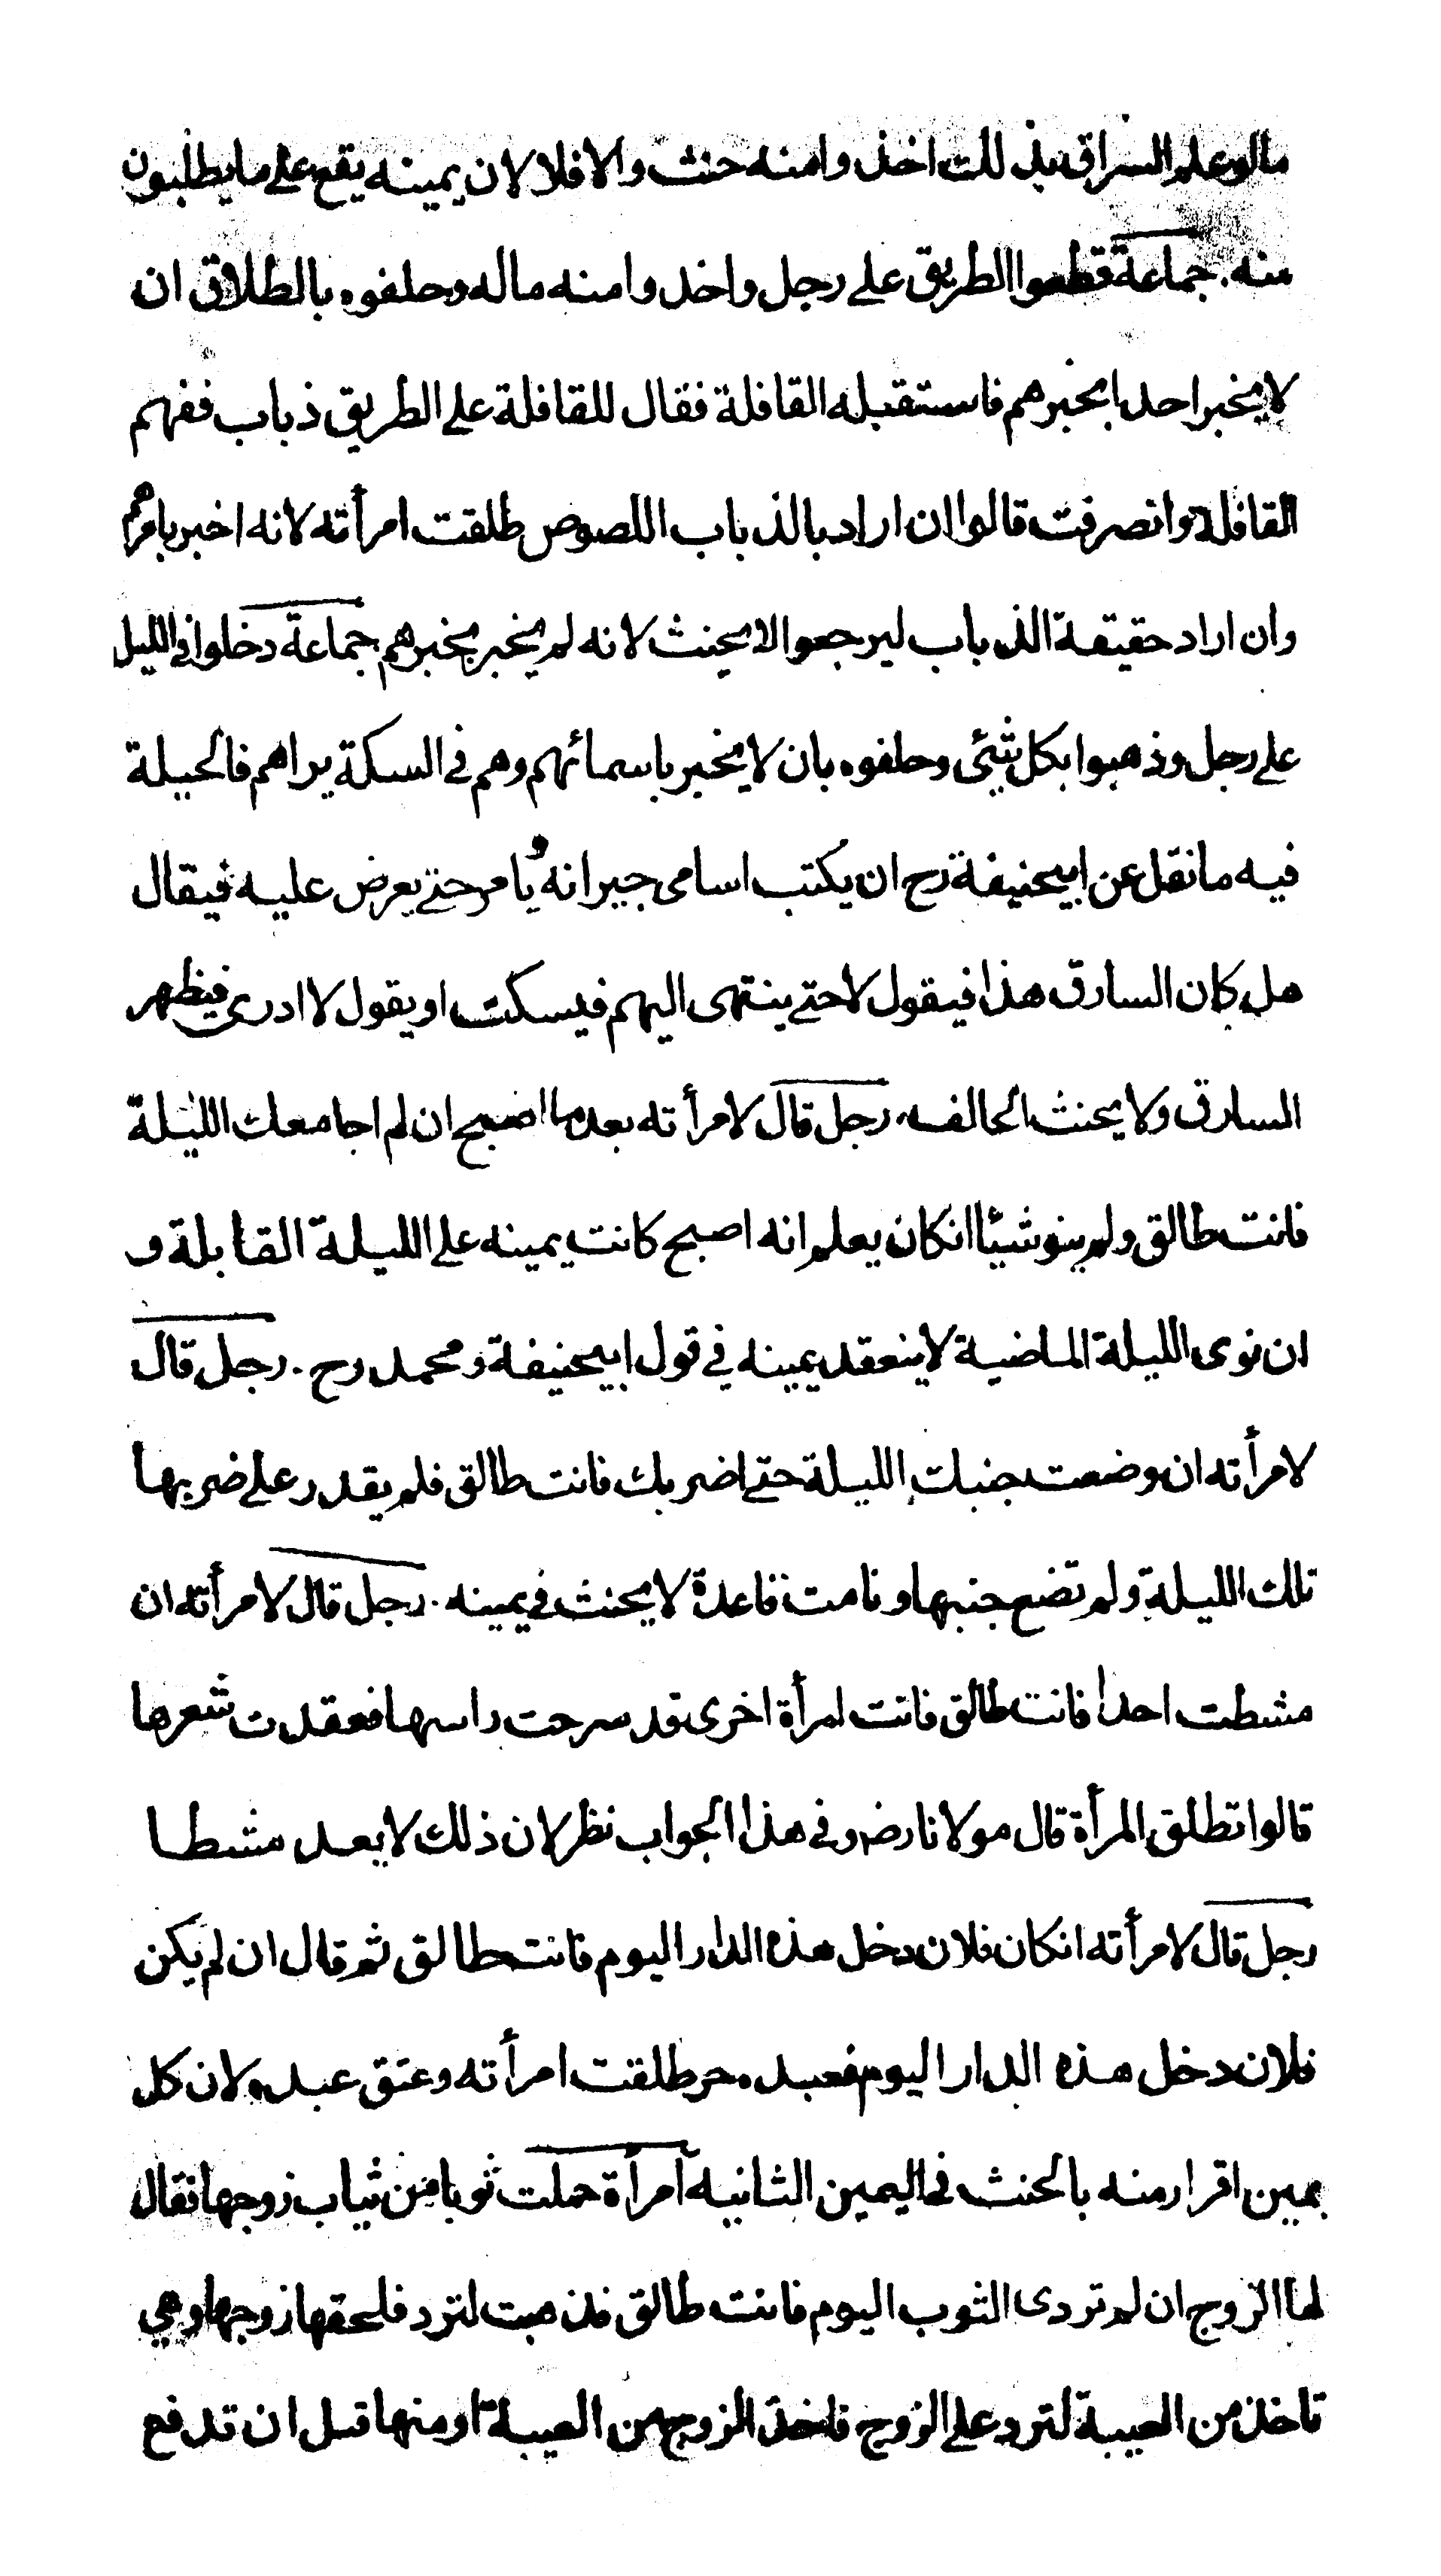 مالو علم السراق بذلك اخذوا منه حنث والا فلا لان يمينه يقع على ما يطلبون
منه . جماعة قطعوا الطريق على رجل واخذوا منه ماله وحلفوه بالطلاق ان
لا يخبر احدا بخبرهم فاستقبله القافلة فقال للقافلة على الطريق ذباب ففهم
القافلة وانصرفت قالوا ان اراد بالذباب اللصوص طلقت امرأته لانه اخبر بامرهم
وان اراد حقيقة الذباب ليرجعوا لا يحنث لانه لم يخبر بخبرهم جماعة دخلوا في الليل
على رجل وذهبوا بكل شيئ وحلفوه بان لا يخبر باسمائهم وهم في السكة يراهم فالحيلة
فيه ما نقل عن ابيحنيفة رح ان يكتب اسامى جيرانه ويامر حتى يعرض عليه فيقال
هل كان السارق هذا فيقول لا حتى ينتهى اليهم فيسكت او يقول لا ادرى فيظهر
السارق ولا يحنث الحالف . رجل قال لامرأته بعد ما اصبح ان لم اجامعك الليلة
فانت طالق ولم ينو شيئا انكان يعلم انه اصبح كانت يمينه على الليلة القابلة و
ان نوى الليلة الماضية لا ينعقد يمينه في قول ابيحنيفة ومحمد رح . رجل قال
لامرأته ان وضعت جنبك الليلة حتى اضربك فانت طالق فلم يقدر على ضربها
تلك الليلة ولم تضع جنبها ونامت قاعدة لا يحنث في يمينه . رجل قال لامرأته ان
مشطت احدا فانت طالق فاتت امرأة اخرى قد سرحت راسها فعقدت شعرها
قالوا تطلق المرأة قال مولانا رض وفي هذا الجواب نظر لان ذلك لا يعد مشطا
رجل قال لامرأته انكان فلان دخل هذه الدار اليوم فانت طالق ثم قال ان لم يكن
فلان دخل هذه الدار اليوم فعبده حر طلقت امرأته وعتق عبده لان كل
يمين اقرار منه بالحنث في اليمين الثانية امرأة حملت ثوبا من ثياب زوجها فقال
لها الزوج ان لم تردى الثوب اليوم فانت طالق فذهبت لترد فلحقها زوجها وهي
تاخذ من العيبة لترد على الزوج فاخذ الزوج من العيبة او منها قبل ان تدفع